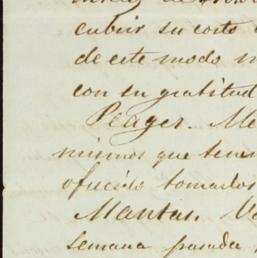 cubrir su costo
de este modo
con su gratitud
Peages. Me
mismos que tene
ofrecido tomarlos
Mantas.
semana pasada